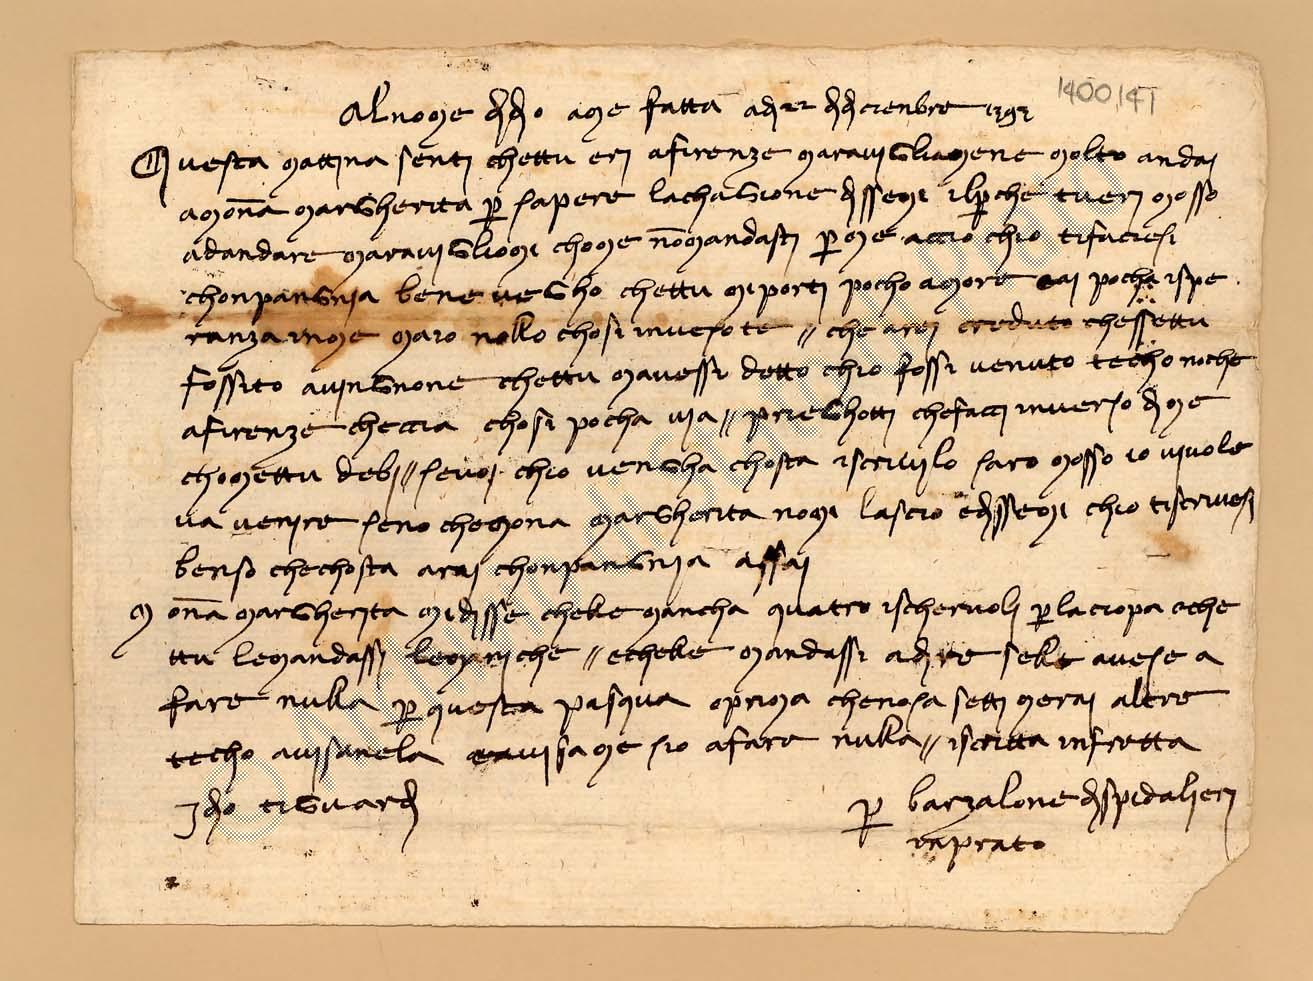 1400141
Al nome d'Dio ame fatta a dì 22 di dicienbre 1392
Questa mattina senti chettu eri afirenze maravigliamene molto andai
amona margherita p sapere lachagione dissemi ilp che tueri mosso
adandare maravigliomi chome nomandasti p me accio chio tifaciesi
chonpangnia bene vegho chettu miporti pocho amore eai pocha ispe
ranza inme maio nollo chosi inverso te // che arei creduto chessettu
fossito avingnone chettu mavessi detto chio fossi venuto techo noche
afirenze checcia chosi pocha via // prieghotti chefacci inverso di me
chomettu debi // sevoi chio vengha chosta iscrivilo saro mosso io vivole
va venire seno chemona margherita nomi lascio edissemi chio tiscrivesi
benso chechosta arai chonpangnia assai
Mona margherita midisse chelle mancha quatro ischeruoli p laciopa eche
ttu lemandassi // echelle mandassi a dire sella avese a
fare nulla p questa pasqua oprima chenosa setti merai altre
techo avisanela eavisame sio afare nulla // iscritta infretta
Idio tiguardi
p barzalone dispidalieri
inprato